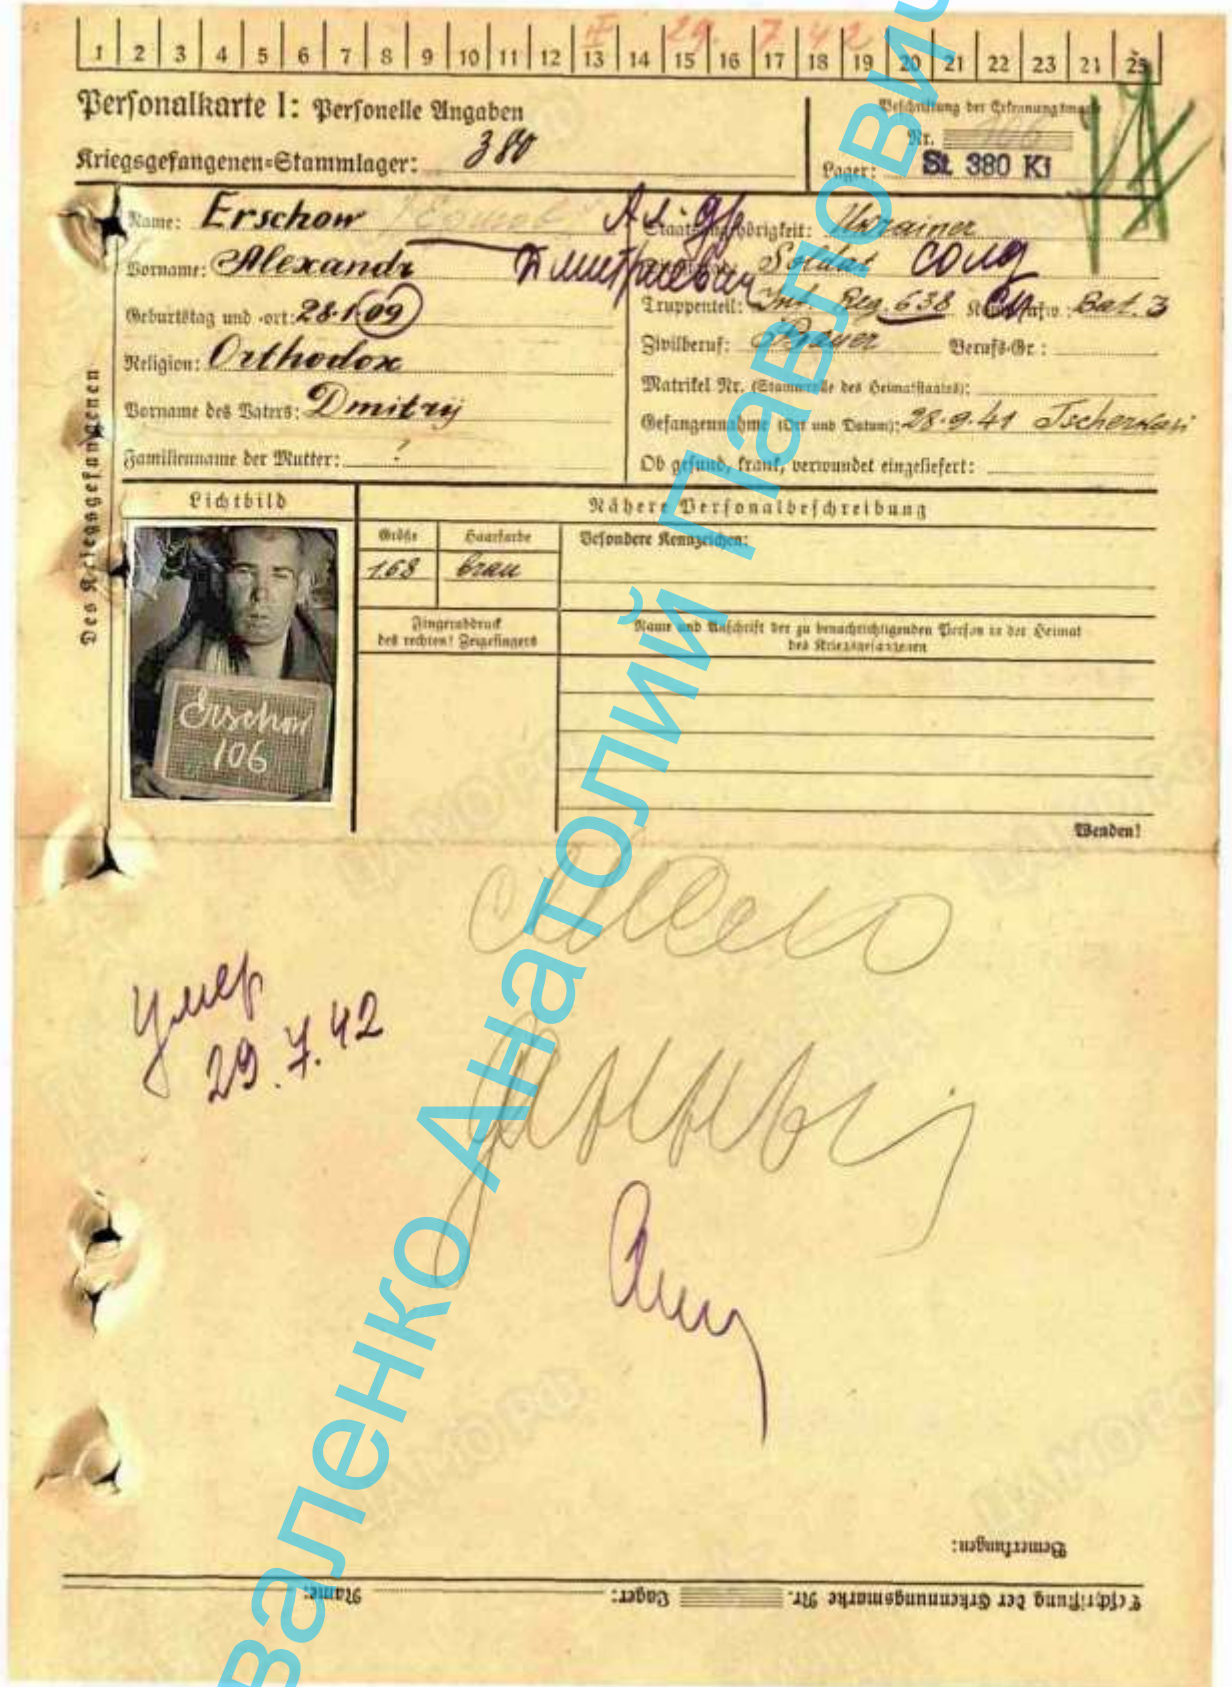 1 2 3 4 5 6 7 8 9 10 11 12 13 14 15 16 17 18 19 20 21 22 23 24 25
II 29. 7. 42
Personalkarte I: Personelle Angaben
Kriegsgefangenen-Stammlager: 380
Beschriftung der Erkennungsmarke
Nr. 106
Lager: St. 380 Ki
Des Kriegsgefangenen
Name: Erschow Ершов
Vorname: Alexandr
Дмитриевич
Geburtstag und -ort: 28.1.09
Religion: Orthodox
Vorname des Vaters: Dmitrij
Familienname der Mutter: ?
Staatsangehörigkeit: Ukrainer
Soldat солд
Truppenteil: Inf. Reg. 638 Bat. 3
Zivilberuf: Berufs-Gr.:
Matrikel Nr. (Stammrolle des Heimatstaates):
Gefangennahme (Ort und Datum): 28.9.41 Tscherkasi
Ob gesund, krank, verwundet eingeliefert:
Lichtbild
Nähere Personalbeschreibung
Größe
Haarfarbe
Besondere Kennzeichen:
168
brau
Fingerabdruck
des rechten! Zeigefingers
Name und Anschrift der zu benachrichtigenden Person in der Heimat
des Kriegsgefangenen
Erschow
106
Wenden!
умер
29.7.42
Bemerkungen:
Beschriftung der Erkennungsmarke Nr. Lager: Name:
валенко Анатолий Павлович
ЦАМО РФ